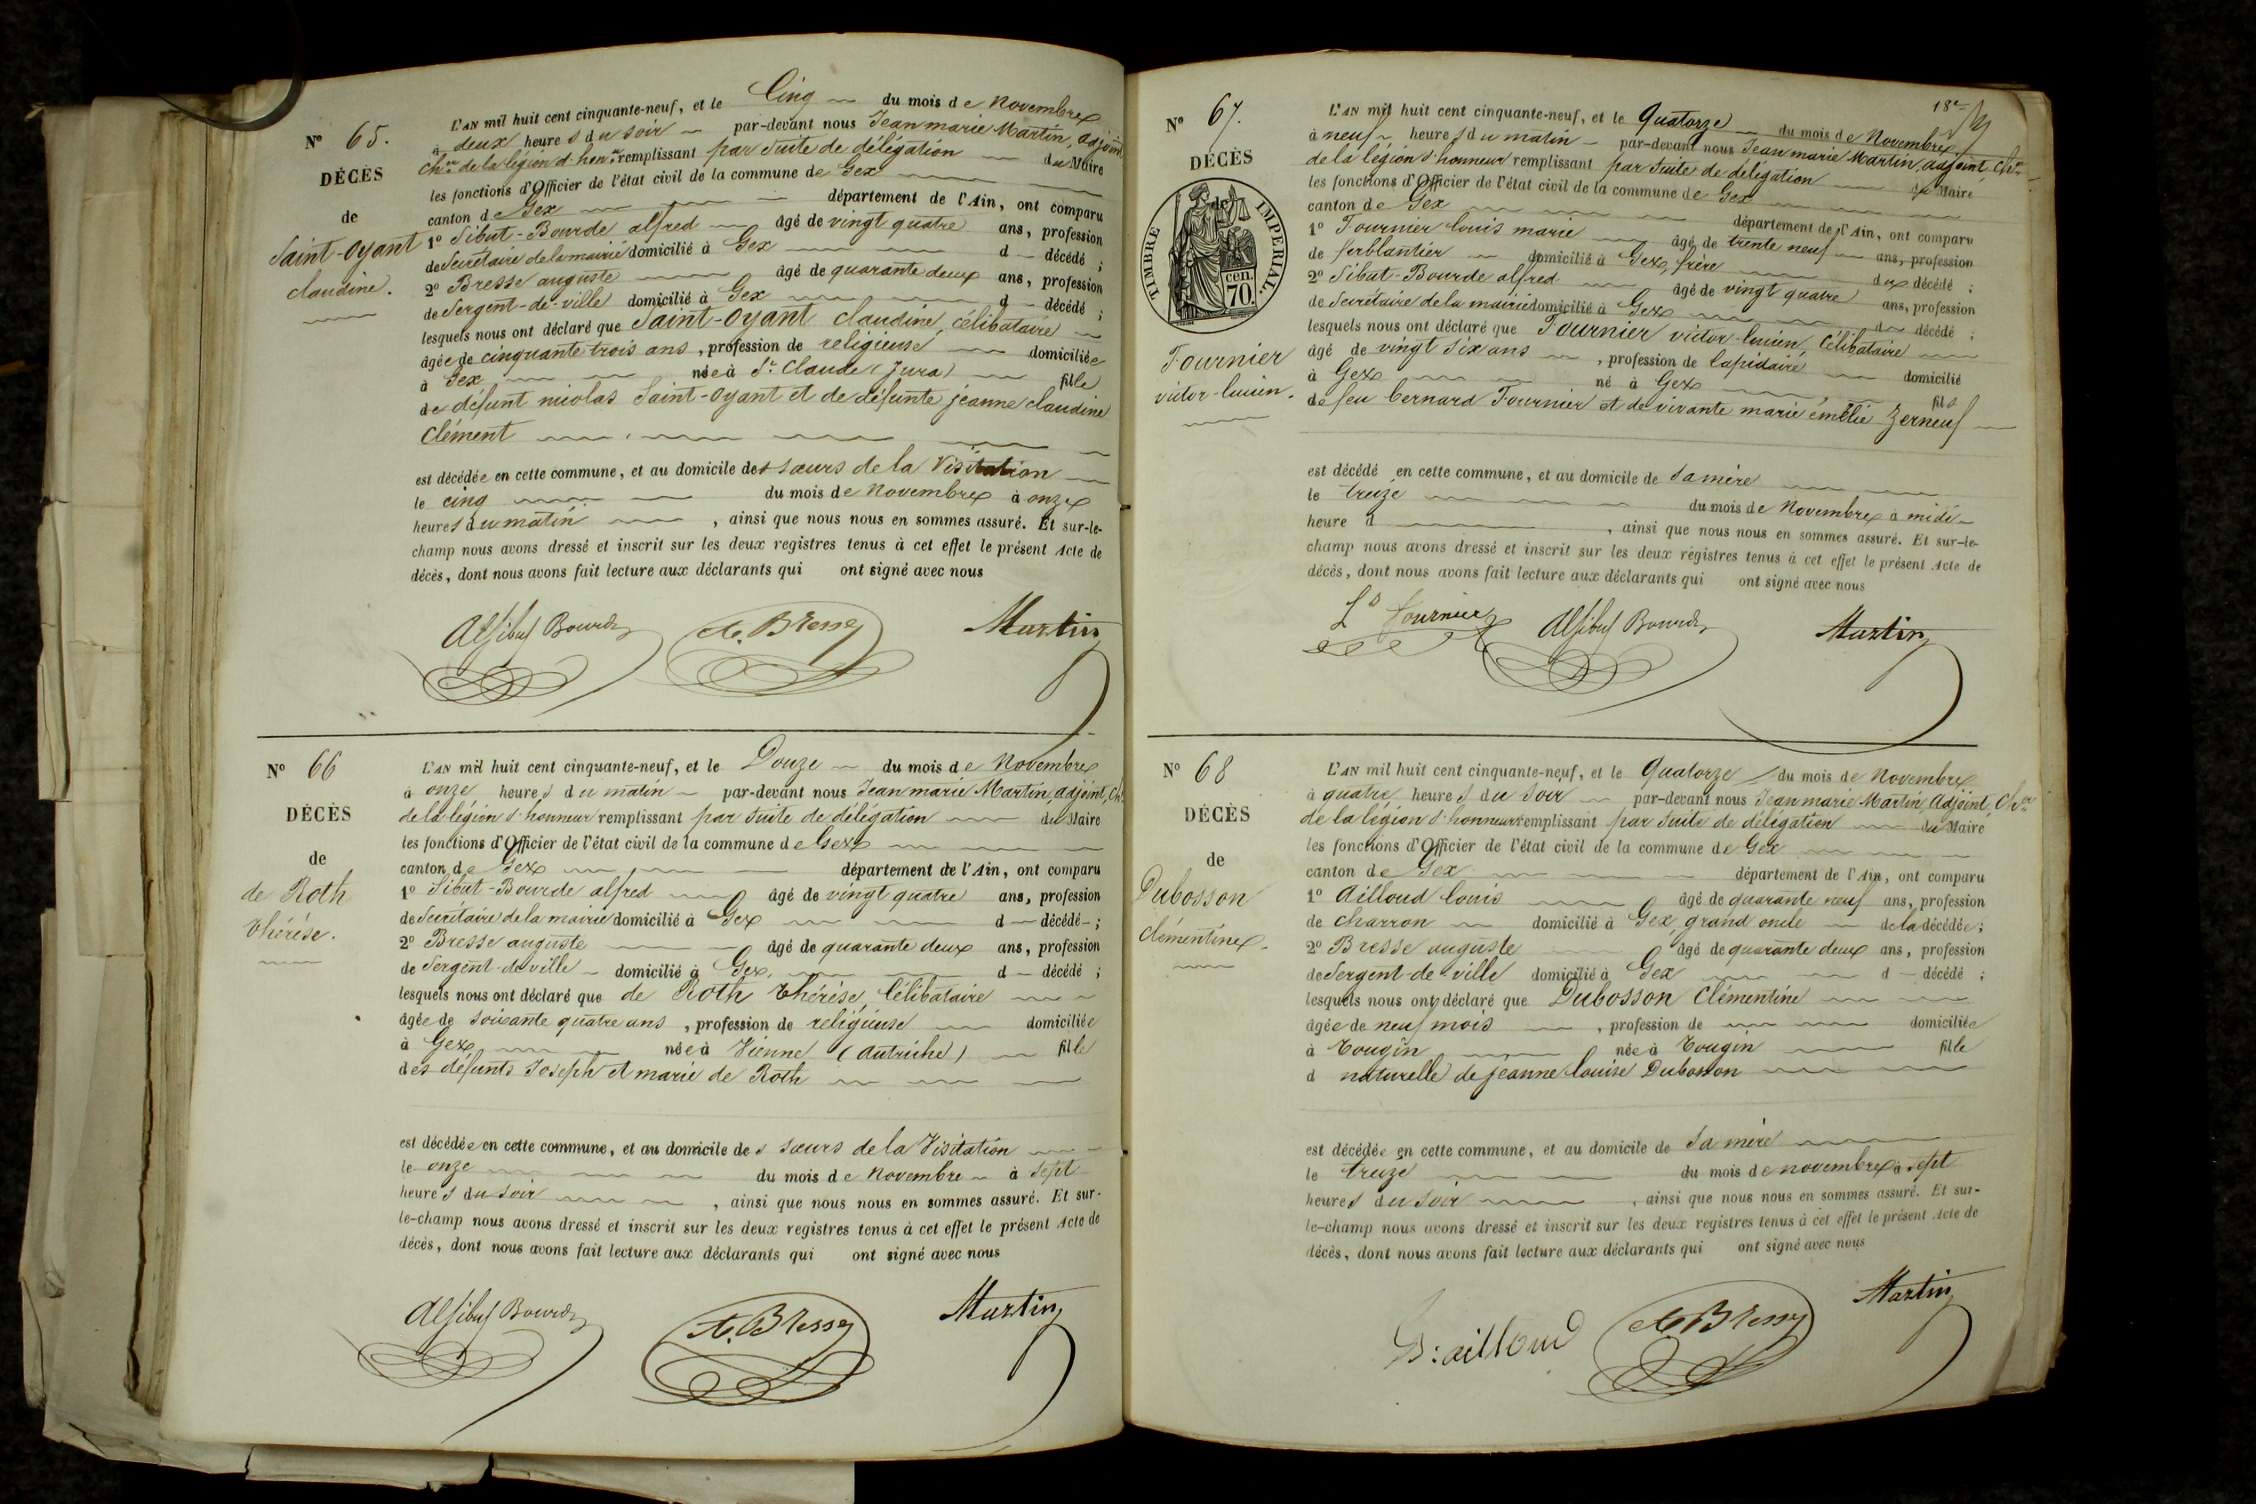 N° 65.
DÉCÈS
de
Saint-Oyant
claudine.
L'AN mil huit cent cinquante-neuf, et le Cinq du mois de Novembre
à deux heures du soir par-devant nous Jean marie Martin, adjoint
Ch.er de la légion d'hon.r remplissant par suite de délégation du Maire
les fonctions d'Officier de l'état civil de la commune de Gex
canton de Gex département de l'Ain, ont comparu
1° Sibut-Bourde alfred âgé de vingt quatre ans, profession
de Secrétaire de la mairie domicilié à Gex d décédé ;
2° Bresse auguste âgé de quarante deux ans, profession
de Sergent-de-ville domicilié à Gex d décédé ;
lesquels nous ont déclaré que Saint-Oyant claudine, célibataire
âgée de cinquante trois ans, profession de religieuse domiciliée
à Gex née à St Claude (Jura) fille
de défunt nicolas Saint-Oyant et de défunte jeanne claudine
Clément
est décédée en cette commune, et au domicile des sœurs de la Visitation
le cinq du mois de Novembre à onze
heures du matin, ainsi que nous nous en sommes assuré. Et sur-le-
champ nous avons dressé et inscrit sur les deux registres tenus à cet effet le présent Acte de
décès, dont nous avons fait lecture aux déclarants qui ont signé avec nous
Al Sibut Bourde A. Bresse Martin
N° 66
DÉCÈS
de
de Roth
thérése.
L'AN mil huit cent cinquante-neuf, et le Douze du mois de Novembre
à onze heures du matin par-devant nous Jean marie Martin, adjoint, Ch.er
de la légion d'honneur remplissant par suite de délégation du Maire
les fonctions d'Officier de l'état civil de la commune de Gex
canton de Gex département de l'Ain, ont comparu
1° Sibut-Bourde alfred âgé de vingt quatre ans, profession
de Secrétaire de la mairie domicilié à Gex d décédé ;
2° Bresse auguste âgé de quarante deux ans, profession
de Sergent-de-ville domicilié à Gex, d décédé ;
lesquels nous ont déclaré que de Roth thérése, Célibataire
âgée de soixante quatre ans, profession de religieuse domiciliée
à Gex née à Vienne (Autriche) fille
des défunts Joseph et marie de Roth
est décédée en cette commune, et au domicile des sœurs de la Visitation
le onze du mois de Novembre à sept
heures du soir, ainsi que nous nous en sommes assuré. Et sur-
le-champ nous avons dressé et inscrit sur les deux registres tenus à cet effet le présent Acte de
décès, dont nous avons fait lecture aux déclarants qui ont signé avec nous
Al Sibut Bourde A. Bresse Martin
18e
N° 67.
DÉCÈS
de
TIMBRE IMPERIAL.
cen.
70.
Fournier
victor-lucien.
L'AN mil huit cent cinquante-neuf, et le Quatorze du mois de Novembre
à neuf heures du matin par-devant nous Jean marie Martin, adjoint, Ch.er
de la légion d'honneur remplissant par suite de délégation du Maire
les fonctions d'Officier de l'état civil de la commune de Gex
canton de Gex département de l'Ain, ont comparu
1° Fournier louis marie âgé de trente neuf ans, profession
de ferblantier domicilié à Gex, frère du décédé ;
2° Sibut-Bourde alfred âgé de vingt quatre ans, profession
de Secrétaire de la mairie domicilié à Gex d décédé ;
lesquels nous ont déclaré que Fournier victor-lucien, Célibataire
âgé de vingt six ans, profession de lapidaire domicilié
à Gex né à Gex fils
de feu bernard Fournier et de vivante marie émélie Zerneuf
est décédé en cette commune, et au domicile de sa mère
le treize du mois de Novembre à midi
heure d, ainsi que nous nous en sommes assuré. Et sur-le-
champ nous avons dressé et inscrit sur les deux registres tenus à cet effet le présent Acte de
décès, dont nous avons fait lecture aux déclarants qui ont signé avec nous
Ls fournier Al Sibut Bourde Martin
N° 68
DÉCÈS
de
Dubosson
clémentine.
L'AN mil huit cent cinquante-neuf, et le Quatorze du mois de Novembre
à quatre heures du soir par-devant nous Jean marie Martin, Adjoint, Ch.er
de la légion d'honneur remplissant par suite de délégation du Maire
les fonctions d'Officier de l'état civil de la commune de Gex
canton de Gex département de l'Ain, ont comparu
1° Ailloud louis âgé de quarante neuf ans, profession
de charron domicilié à Gex, grand oncle de la décédée ;
2° Bresse auguste âgé de quarante deux ans, profession
de Sergent-de-ville domicilié à Gex d décédé ;
lesquels nous ont déclaré que Dubosson Clémentine
âgée de neuf mois, profession de domiciliée
à Tougin née à Tougin fille
d naturelle de jeanne louise Dubosson
est décédée en cette commune, et au domicile de sa mère
le treize du mois de novembre à sept
heures du soir, ainsi que nous nous en sommes assuré. Et sur-
le-champ nous avons dressé et inscrit sur les deux registres tenus à cet effet le présent Acte de
décès, dont nous avons fait lecture aux déclarants qui ont signé avec nous
ailloud A Bresse Martin